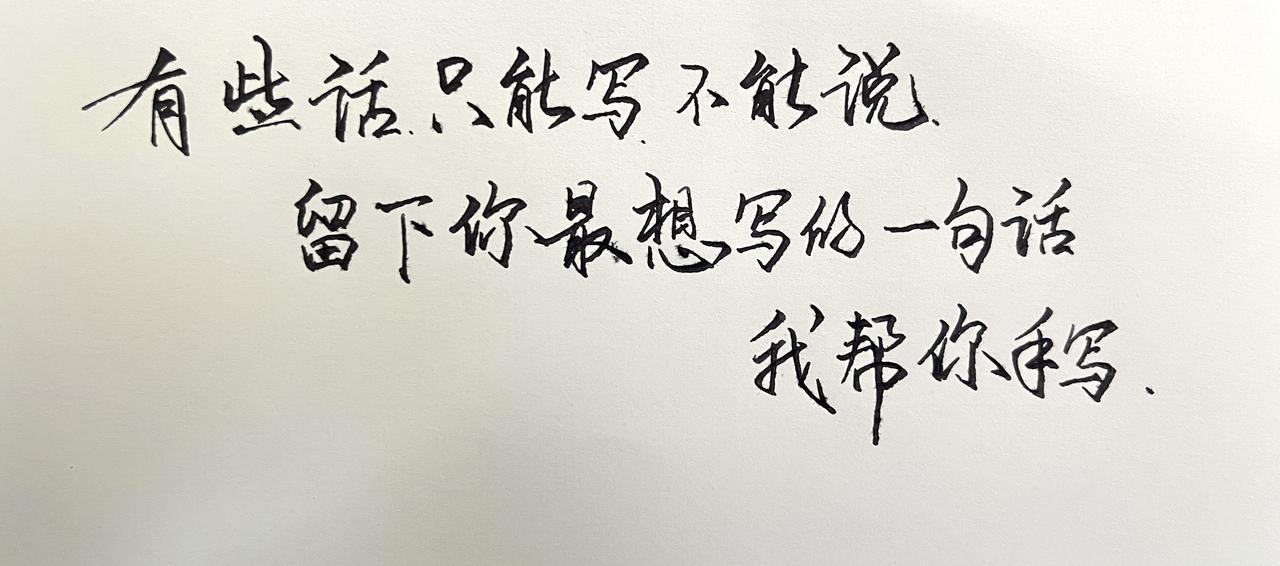 有些话只能写不能说.
留下你最想写的一句话
我帮你手写.